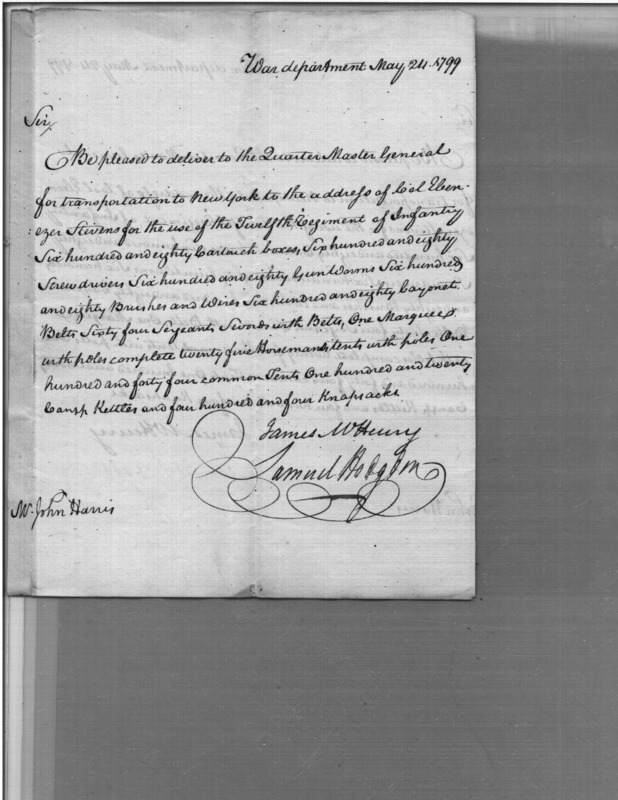 War department May 24. 1799
Sir,
Be pleased to deliver to the Quarter Master General
for transportation to New York to the address of Col Eben-
ezer Stevens for the use of the Twelfth Regiment of Infantry
Six hundred and eighty Cartouch boxes, Six hundred and eighty
Screw drivers Six hundred and eighty Gun Worms Six hundred
and eighty Brushes and Wires Six hundred and eighty bayonet
Belts Sixty four Sergeants Swords with Belts, One Marquee
with poles complete twenty five Horsemans tents with poles One
hundred and forty four common Tents One hundred and twenty
Camp Kettles and four hundred and four Knapsacks
James McHenry
Samuel Hodgdon
Mr. John Harris